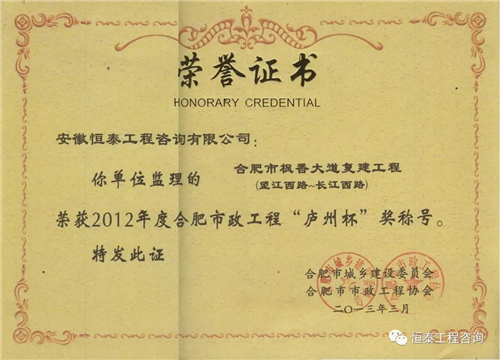 荣誉证书
HONORARY CREDENTIAL
安徽恒泰工程咨询有限公司：
你单位监理的 合肥市枫香大道复建工程
(望江西路~长江西路)
荣获2012年度合肥市政工程“庐州杯”奖称号。
特发此证
合肥市城乡建设委员会
合肥市市政工程协会
二〇一三年三月
恒泰工程咨询